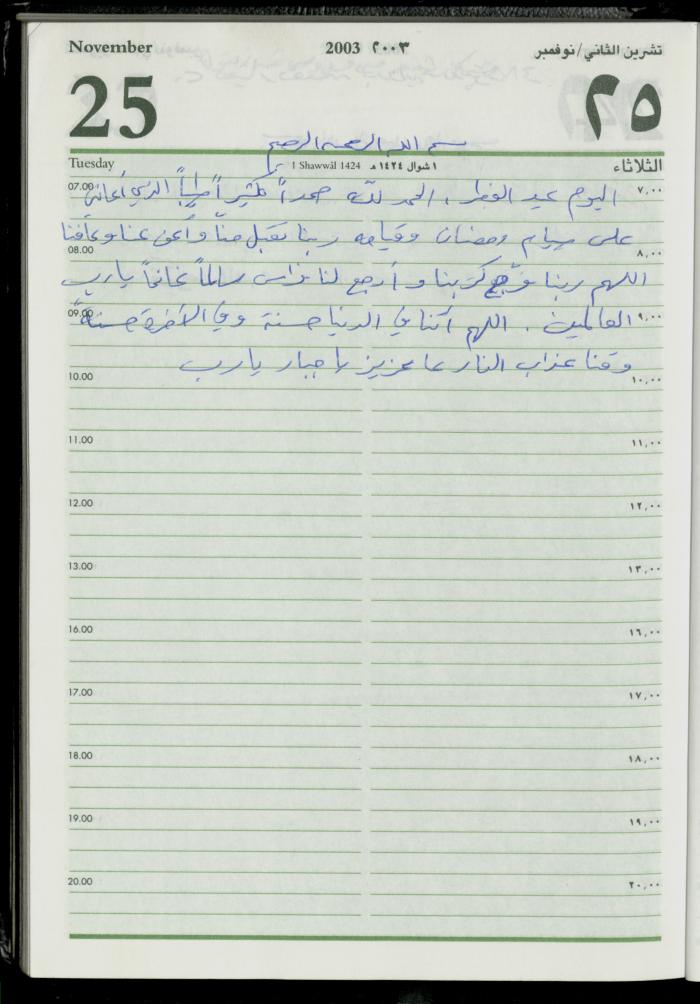 November 2003 ٢٠٠٣ تشرين الثاني/نوفمبر
25 ٢٥
بسم الله الرحمن الرحيم
Tuesday 1 Shawwāl 1424 ١ شوال ١٤٢٤ هـ الثلاثاء
07.00 ٧,٠٠
اليوم عيد الفطر. الحمد لله حمداً كثيراً طيباً الذي أعانني
على صيام رمضان وقيامه ربنا تقبل منا وأعفى عنا وعافنا
08.00 ٨,٠٠
اللهم ربنا فرّج كربنا و أرجع لنا نزاس سالماً غانماً يا رب
09.00 ٩,٠٠
العالمين. اللهم آتنا في الدنيا حسنة وفي الآخرة حسنةً
وقنا عذاب النار يا عزيز يا جبار يا رب
10.00 ١٠,٠٠
11.00 ١١,٠٠
12.00 ١٢,٠٠
13.00 ١٣,٠٠
16.00 ١٦,٠٠
17.00 ١٧,٠٠
18.00 ١٨,٠٠
19.00 ١٩,٠٠
20.00 ٢٠,٠٠